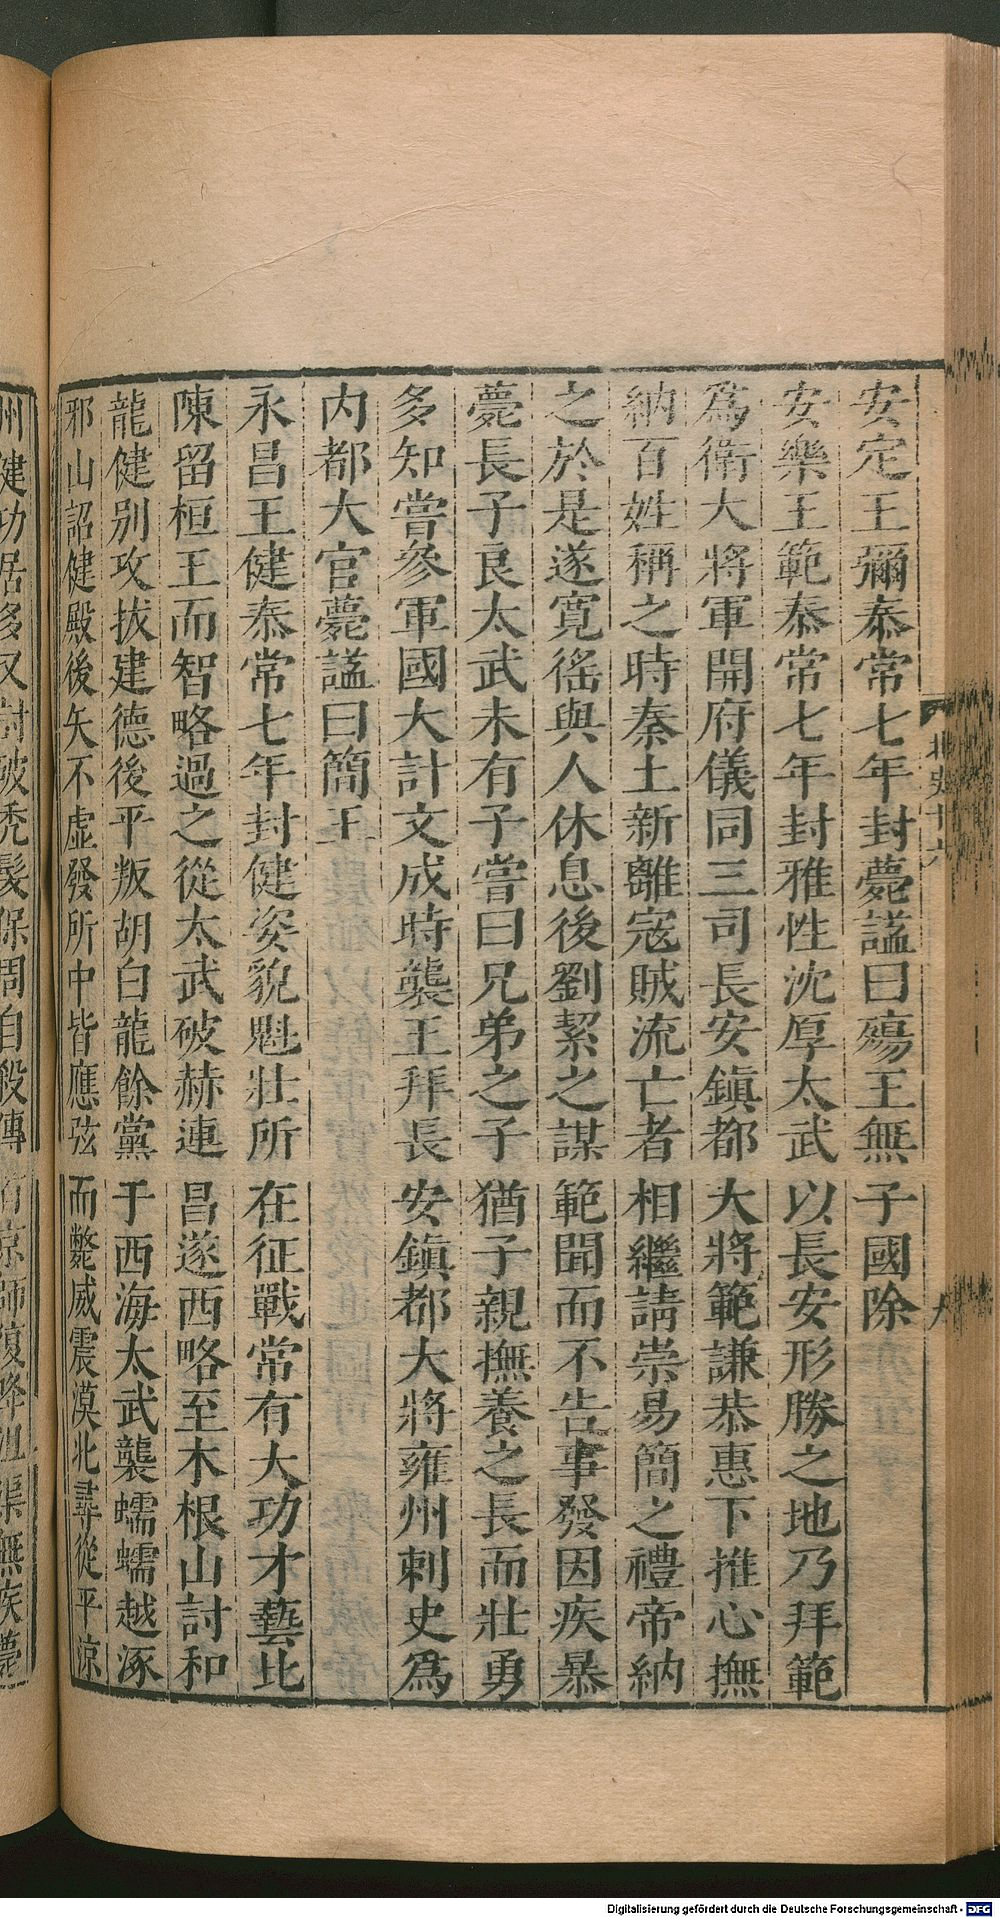 安定王彌泰常七年封薨諡曰殤王無子國除
安樂王範泰常七年封雅性沈厚太武以長安形勝之地乃拜範
爲衛大將軍開府儀同三司長安鎮都大將範謙恭惠下推心撫
納百姓稱之時秦土新離寇賊流亡者相繼請崇易簡之禮帝納
之於是遂寬徭與人休息後劉絜之謀範聞而不告事發因疾暴
薨長子良太武未有子嘗曰兄弟之子猶子親撫養之長而壯勇
多知嘗參軍國大計文成時襲王拜長安鎮都大將雍州刺史爲
内都大官薨諡曰簡王
永昌王健泰常七年封健姿貌魁壯所在征戰常有大功才藝比
陳留桓王而智略過之從太武破赫連昌遂西略至木根山討和
龍健別攻拔建德後平叛胡白龍餘黨于西海太武襲蠕蠕越涿
邪山詔健殿後矢不虛發所中皆應弦而斃威震漠北尋從平涼
州健功居多又討破禿髮保周自殺傳首京師復降沮渠無疾薨
北史十六
九
Digitalisierung gefördert durch die Deutsche Forschungsgemeinschaft - DFG